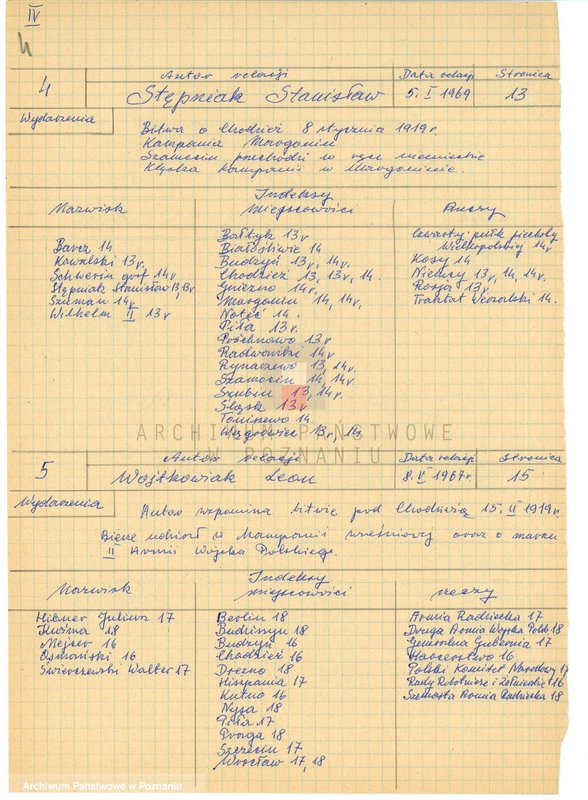 IV
4
Autor relacji Data relacji Stronica
4 Stępniak Stanisław 5.I 1969 13
Wydarzenia
Bitwa o Chodzież 8 stycznia 1919 r.
Kampania Margonin
Szamocin przechodzi w ręce niemieckie
Klęska kampanii w Margoninie.
Indeksy
Nazwisk Miejscowości Rzeczy
Barcz 14
Kowalski 13v.
Schwerin graf 14v.
Stępniak Stanisław 13, 13v
Szulman 14v.
Wilhelm II 13v
Bałtyk 13v
Białośliwie 14
Budzyń 13v, 14v.
Chodzież 13, 13v, 14.
Gniezno 14v.
Margonin 14, 14v,
Noteć 14.
Piła 13v.
Próchnowo 13v
Radwanki 14v
Rynarzewo 13, 14v.
Szamocin 14, 14v.
Szubin 13, 14v.
Śląsk 13v
Toniszewo 14.
Wągrowiec 13v, 14.
czwarty pułk piechoty
Wielkopolskiej 14v
Kosy 14
Niemcy 13v, 14, 14v.
Rosja 13v.
Traktat Wersalski 14.
ARCHIWUM PAŃSTWOWE
W POZNANIU
Autor relacji Data relacji Stronica
5 Wojtkowiak Leon 8.V 1967r. 15
Wydarzenia
Autor wspomina bitwę pod Chodzieżą 15.II 1919r.
Bierze udział w kampanii wrześniowej oraz o marszu
II Armii Wojska Polskiego.
Indeksy
Nazwisk miejscowości rzeczy
Hibner Juliusz 17
Kuźma 18
Mejser 16
Osmański 16
Świerczewski Walter 17
Berlin 18
Budziszyn 18
Budzyń 16
Chodzież 16
Drezno 18
Hiszpania 17
Kutno 16
Nysa 18
Piła 17
Praga 18
Szczecin 17
Wrocław 17, 18
Armia Radziecka 17
Druga Armia Wojska Polsk. 18
Generalna Gubernia 17
Harcerstwo 16
Polski Komitet Narodowy 17
Rady Robotnicze i Żołnierskie 16
Szesnasta Armia Radziecka 18
Archiwum Państwowe w Poznaniu